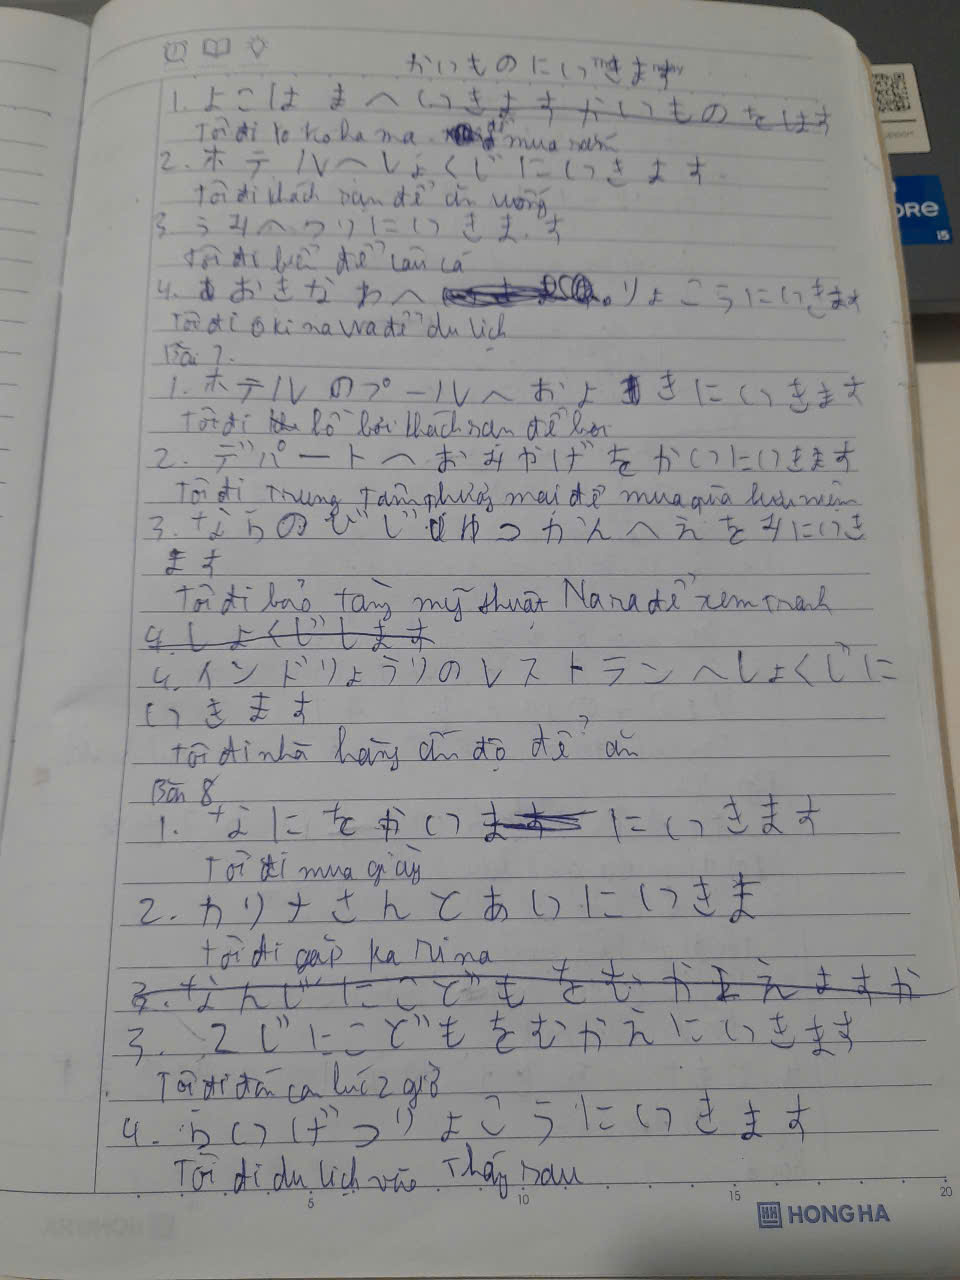 かいものにいきます
1. よこはまへいきますかいものをします
Tôi đi Yokohama để mua sắm
2. ホテルへしょくじにいきます.
Tôi đi khách sạn để ăn uống
3. うみへつりにいきます
Tôi đi biển để câu cá
4. おきなわへ りょこうにいきます
Tôi đi Okinawa để du lịch
Bài 7.
1. ホテルのプールへおよぎにいきます
Tôi đi hồ bơi khách sạn để bơi
2. デパートへおみやげをかいにいきます
Tôi đi trung tâm thương mại để mua quà lưu niệm
3. ならのびじゅつかんへえをみにいき
ます
Tôi đi bảo tàng mỹ thuật Nara để xem tranh
4. しょくじします
4. インドりょうりのレストランへしょくじに
いきます
Tôi đi nhà hàng ấn độ để ăn
Bài 8
1. なにをかいます にいきます
Tôi đi mua giày
2. カリナさんとあいにいきま
Tôi đi gặp Karina
3. なんじにこどもをむかえますか
3. 2じにこどもをむかえにいきます
Tôi đi đón con lúc 2 giờ
4. らいげつりょこうにいきます
Tôi đi du lịch vào tháng sau
5 10 15 20
HONG HA
CORE
i5